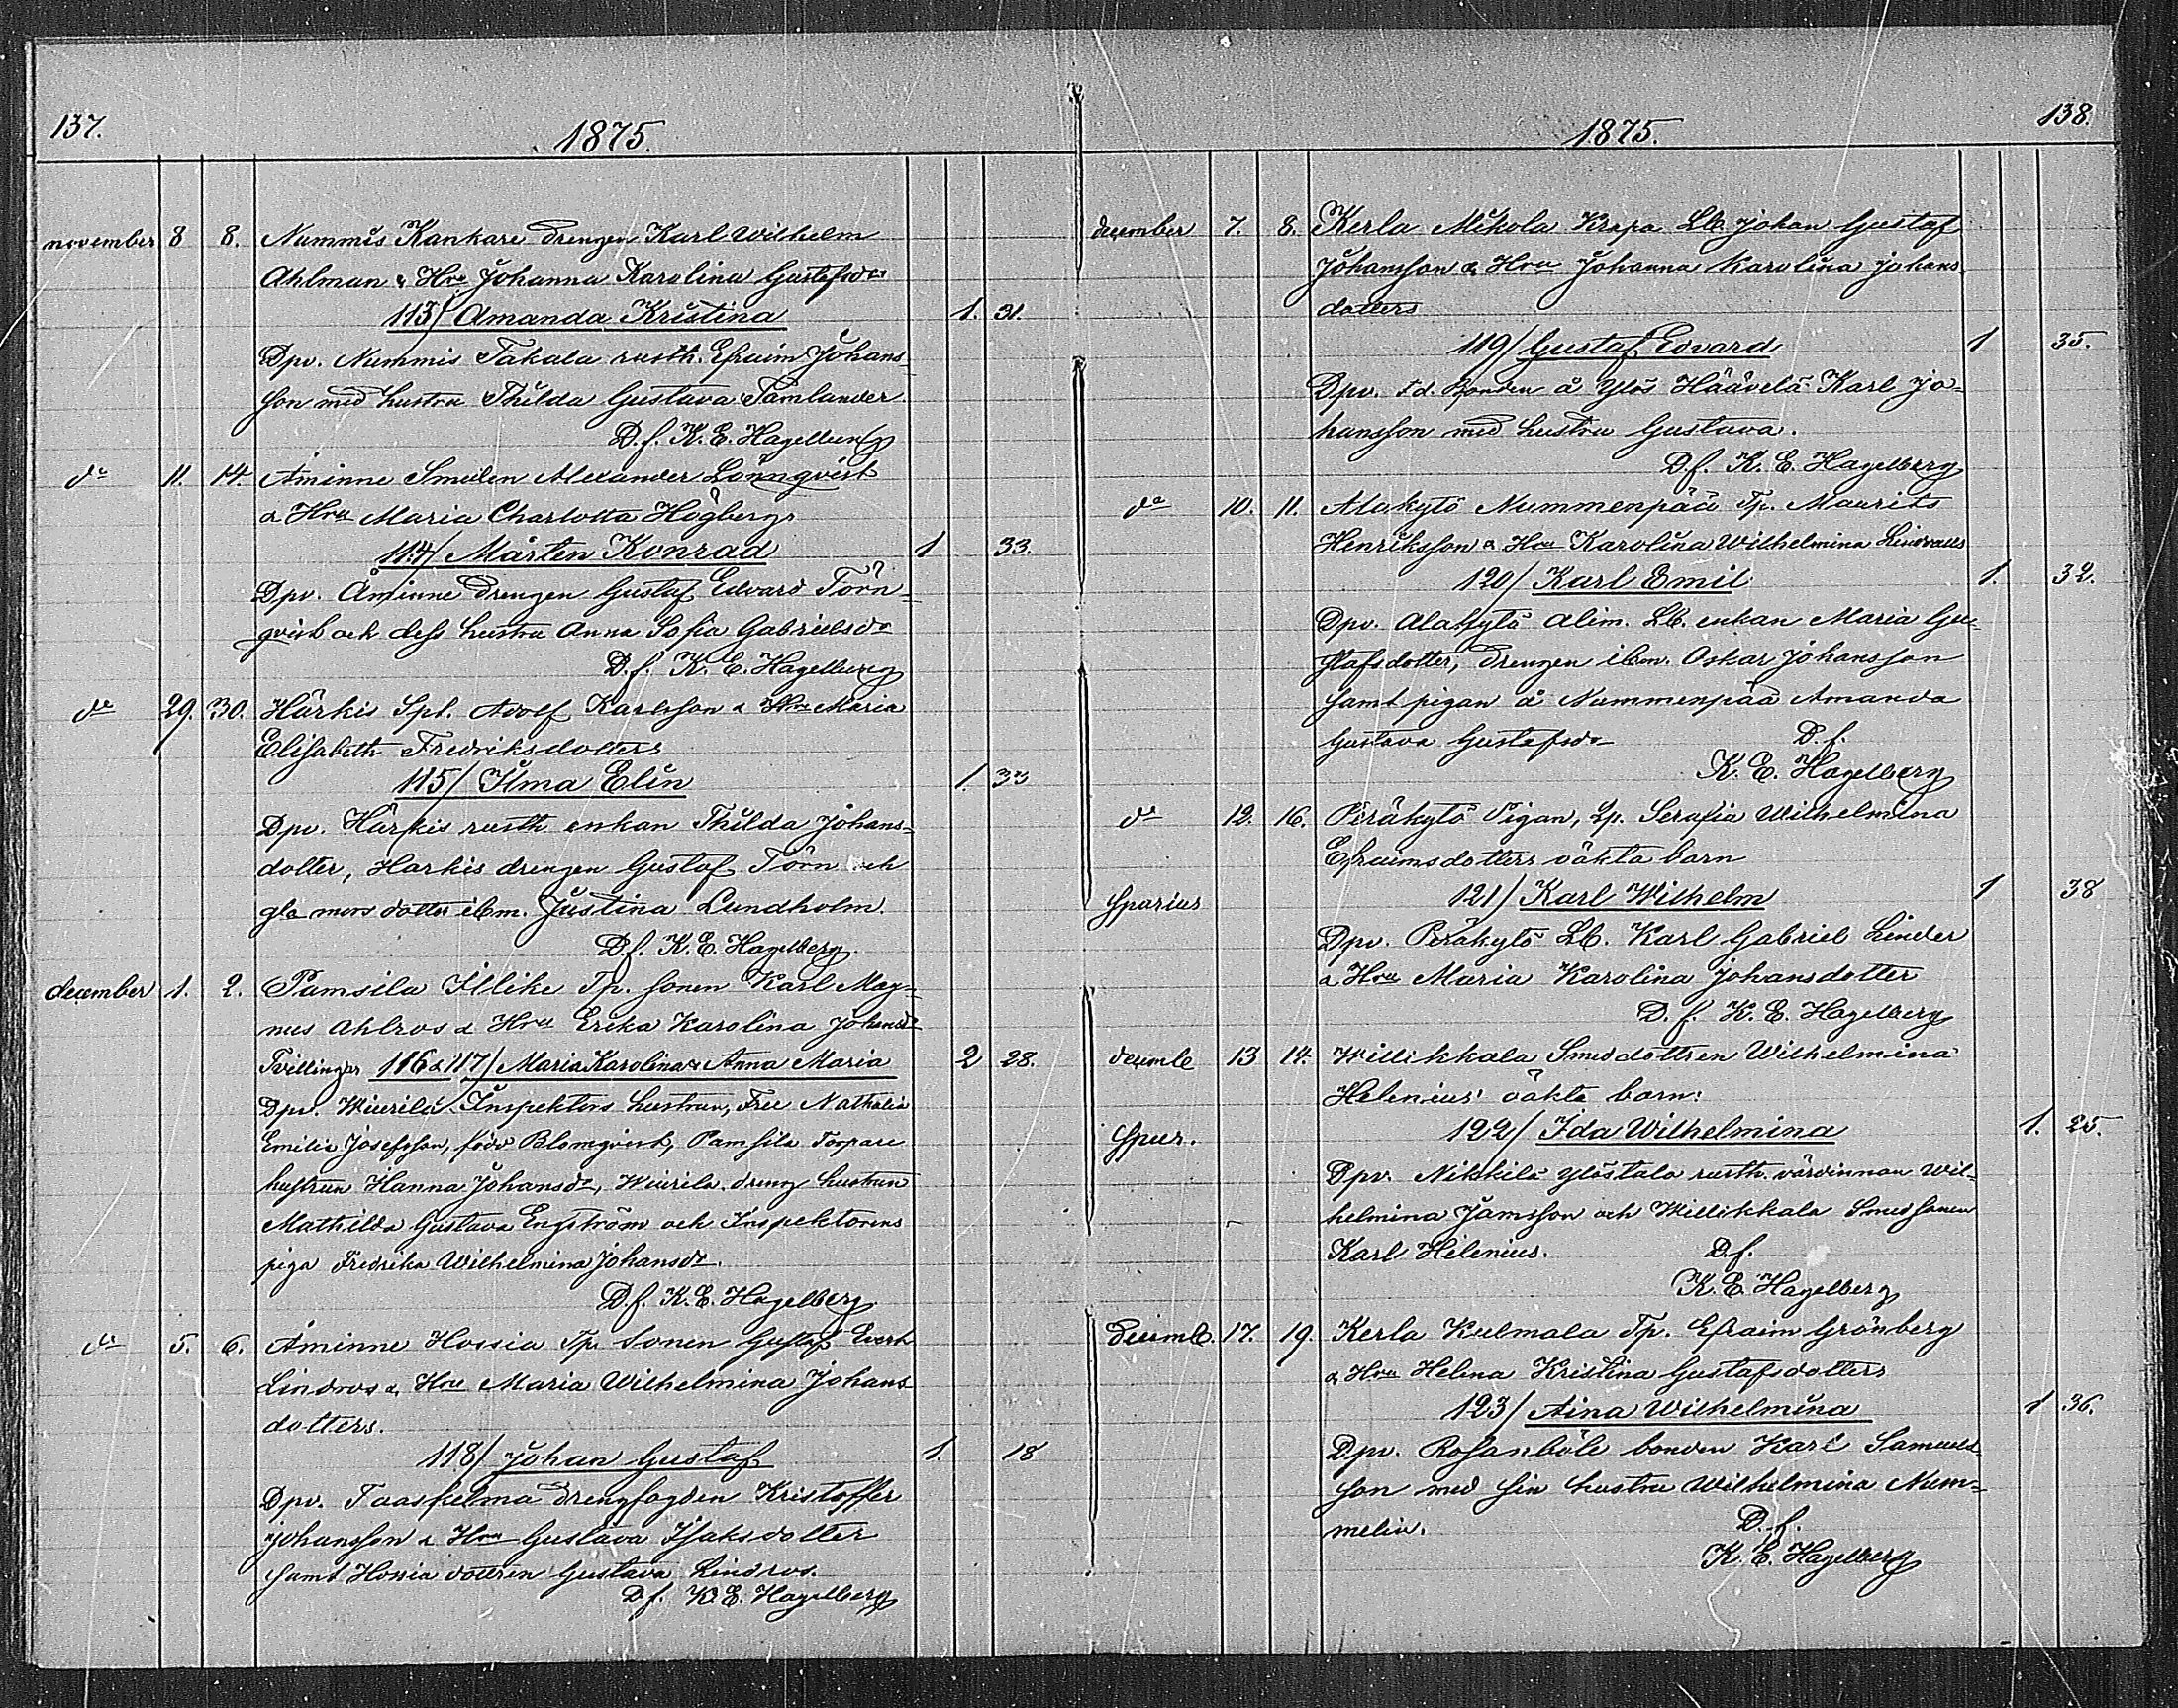 137.
1875.
november 8 8. Nummis Kankare drengen Karl Wilhelm
Ahlman & Hru Johanna Karolina Gustafsdrs
113/ Amanda Kristina 1. 31.
Dpv. Nummis Takala rusth. Efraim Johans-
son med hustru Thilda Gustava Tamlander
D.f. K. E. Hagelberg
do 11. 14. Åminne Smeden Alexander Lönnqvist
& Hru Maria Charlotta Högbergs
114/ Mårten Konrad 1 33.
Dpv. Åminne drengen Gustaf Edvard Törn-
qvist och dess hustru Anna Sofia Gabrielsdr
D.f. K. E. Hagelberg
do 29. 30. Härkis Spl. Adolf Karlsson & Hru Maria
Elisabeth Fredriksdotters
115/ Ilma Elin 1. 33
Dpv. Härkis rusth. enkan Thilda Johans-
dotter, Harkis drengen Gustaf Törn och
gla mors dotter ibm. Justina Lundholm.
D.f. K. E. Hagelberg
december 1. 2. Pamsila Illike Tp. sonen Karl Mag-
nus Ahlros & Hru Erika Karolina Johansdr
Tvillingar 116 & 117/ Maria Karolina & Anna Maria 2 28.
Dpv. Wiurila Inspektors hustrun, Fru Nathalia
Emilia Josefsson, född Blomqvist, Pamsila Torpare
hustrun Hanna Johansdr, Wiurila dreng hustrun
Mathilda Gustava Engström och Inspektorens
piga Fredrika Wilhelmina Johansdr.
D.f. K. E. Hagelberg
do 5. 6. Åminne Hossia Tp. Sonen Gustaf Evert
Lindros & Hru Maria Wilhelmina Johans
dotters.
118/ Johan Gustaf 1. 18
Dpv. Taaskelma drengfogden Kristoffer
Johansson & Hru Gustava Isaksdotter
samt Hossia dottren Gustava Lindros.
D.f. K. E. Hagelberg
138.
1875.
december 7. 8. Kerla Mikola Krapa Lb. Johan Gustaf
Johansson & Hru Johanna Karolina Johans
dotters
119/ Gustaf Edvard 1 35.
Dpv. f.d. Bonden å Ylös Häävelä Karl Jo-
hansson med hustru Gustava.
D.f. K. E. Hagelberg
do 10. 11. Alakytö Nummenpää Tp. Maurits
Henriksson & Hru Karolina Wilhelmina Lindvalls
120/ Karl Emil 1. 32.
Dpv. Alakytö Alim. Lb. enkan Maria Gu-
stafsdotter, drengen ibm. Oskar Johansson
samt pigan å Nummenpää Amanda
Gustava Gustafsdr D.f.
K. E. Hagelberg
do 12. 16. Peräkytö Pigan, Lp. Serafia Wilhelmina
Efraimsdotters oäkta barn
Spurius 121/ Karl Wilhelm 1 38
Dpv. Peräkytö Lb. Karl Gabriel Linder
& Hru Maria Karolina Johansdotter
D.f. K. E. Hagelberg
decemb 13 14. Willikkala Smeddottren Wilhelmina
Helenius' oäkta barn:
Spur. 122/ Ida Wilhelmina 1. 25.
Dpv. Nikkilä Ylöstalo rusth. värdinnan Wil-
helmina Jamsson och Willikkala Smedsonen
Karl Helenius. D.f.
K. E. Hagelberg
Decemb. 17. 19. Kerla Kulmala Tp. Efraim Grönberg
& Hru Helena Kristina Gustafsdotters
123/ Aina Wilhelmina 1 36.
Dpv. Rosanböle bonden Karl Samuels-
son med sin hustru Wilhelmina Num-
melin. D.f.
K. E. Hagelberg